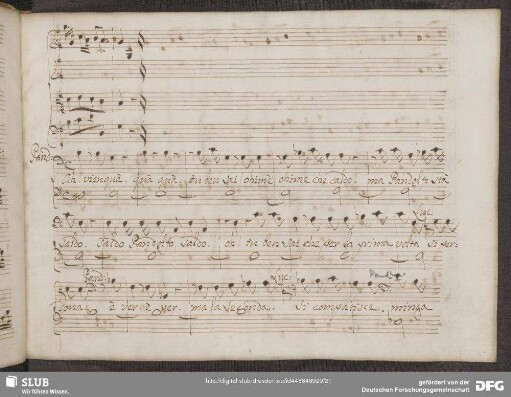 Pand:
Eh vien quà. quà quà. tu ten sai ohimè ohimè che caldo. ma Pandolfo sta
Luc:
saldo. saldo Pandolfo saldo. oh tu ben sai che per la prima volta si per
Pand: Luc: Pand:
dona è ver è ver. ma la seconda. si compatisce. minga
SLUB
Wir führen Wissen.
http://digital.slub-dresden.de/id448646909/21
gefördert von der
Deutschen Forschungsgemeinschaft
DFG